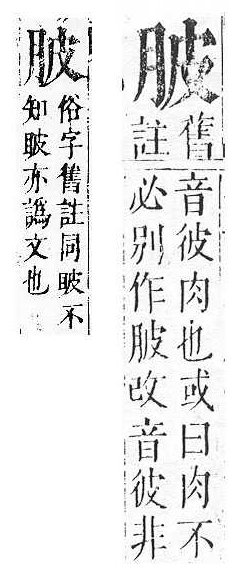 䏢
舊註
音彼肉也或曰肉不
必別作䏢改音彼非
䏢
俗字舊註同不
知亦譌文也